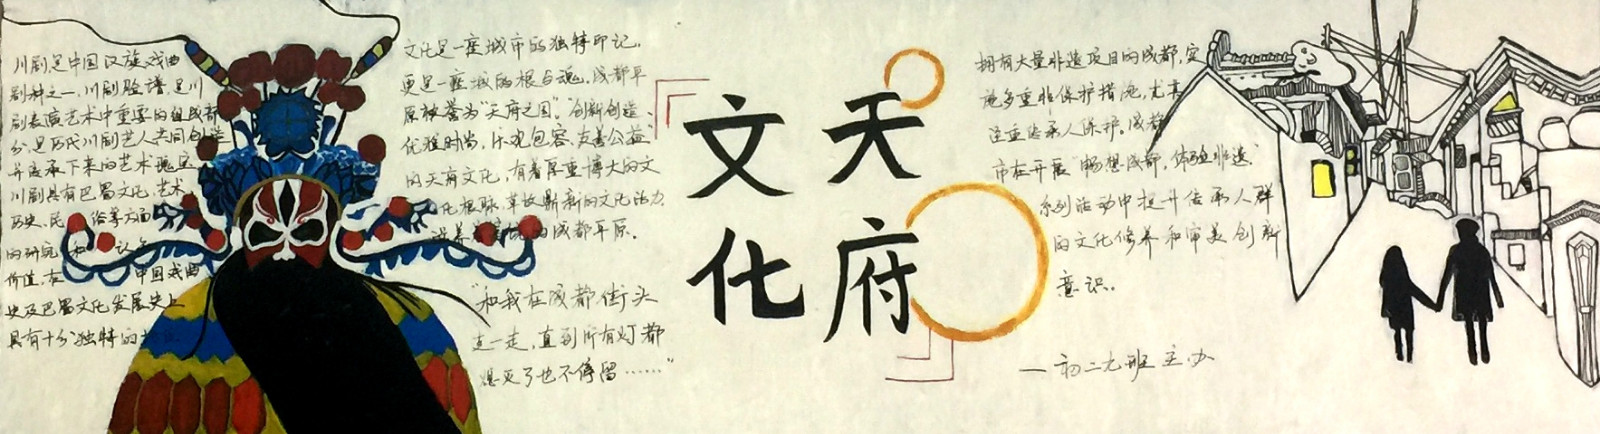 川剧是中国汉族戏曲
剧种之一，川剧脸谱，是川
剧表演艺术中重要的组成部
分，是历代川剧艺人共同创造
并传承下来的艺术瑰宝
川剧具有巴蜀文化、艺术、
历史、民俗等方面
的研究和认
价值，在中国戏曲
史及巴蜀文化发展史上
具有十分独特的
文化是一座城市的独特印记，
更是一座城的根与魂，成都平
原被誉为“天府之国”。创新创造、
优雅时尚，乐观包容，友善公益
的天府文化，有着厚重博大的文
化根脉，革故鼎新的文化活力，
的成都平原。
“和我在成都街头
走一走，直到所有灯都
熄灭了也不停留……”
天府
文化
拥有大量非遗项目的成都，实
施多重非保护措施，尤其
注重传承人保护，成都
市在开展“畅想成都，体验非遗”
系列活动中提升传承人群
的文化修养和审美创新
意识。
—初二九班主办